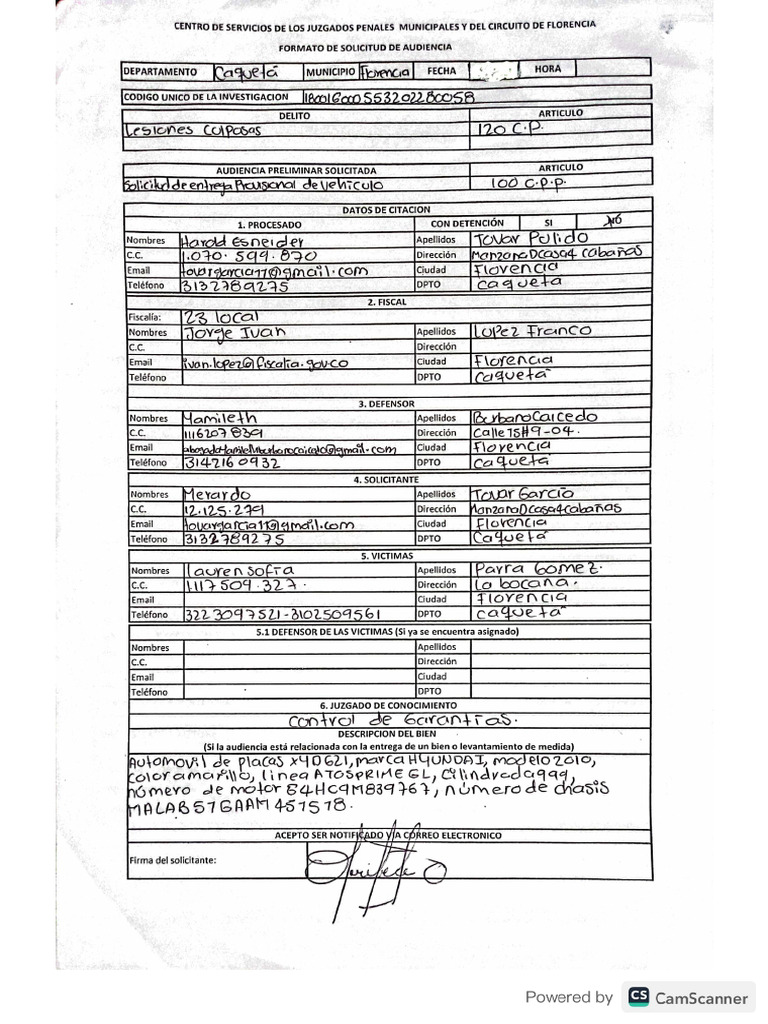 CENTRO DE SERVICIOS DE LOS JUZGADOS PENALES MUNICIPALES Y DEL CIRCUITO DE FLORENCIA
FORMATO DE SOLICITUD DE AUDIENCIA
DEPARTAMENTO Caquetá MUNICIPIO Florencia FECHA HORA
CODIGO UNICO DE LA INVESTIGACION 180016000553202280058
DELITO ARTICULO
Lesiones Culposas 120 C.P.
AUDIENCIA PRELIMINAR SOLICITADA ARTICULO
Solicitud de entrega Provisional de vehiculo 100 C.P.P.
DATOS DE CITACION
1. PROCESADO CON DETENCIÓN SI NO
Nombres Harold Esneider Apellidos Tovar Pulido
C.C. 1.070.599.870 Dirección Manzana D casa 4 cabañas
Email tovargarcia11@gmail.com Ciudad Florencia
Teléfono 3132789275 DPTO Caquetá
2. FISCAL
Fiscalía: 23 local
Nombres Jorge Ivan Apellidos Lopez Franco
C.C. Dirección
Email ivan.lopez@fiscalia.gov.co Ciudad Florencia
Teléfono DPTO Caquetá
3. DEFENSOR
Nombres Yamileth Apellidos Burbano Caicedo
C.C. 1116207839 Dirección Calle 15#9-04.
Email Ciudad Florencia
Teléfono 3142160932 DPTO Caquetá
4. SOLICITANTE
Nombres Merardo Apellidos Tovar Garcia
C.C. 12.125.279 Dirección Manzana D casa 4 cabañas
Email tovargarcia11@gmail.com Ciudad Florencia
Teléfono 3132789275 DPTO Caquetá
5. VICTIMAS
Nombres Lauren Sofia Apellidos Parra Gomez.
C.C. 1117509.327. Dirección La bocana.
Email Ciudad Florencia
Teléfono 3223097521-3102509561 DPTO Caquetá
5.1 DEFENSOR DE LAS VICTIMAS (Si ya se encuentra asignado)
Nombres Apellidos
C.C. Dirección
Email Ciudad
Teléfono DPTO
6. JUZGADO DE CONOCIMIENTO
Control de Garantias.
DESCRIPCION DEL BIEN
(Si la audiencia está relacionada con la entrega de un bien o levantamiento de medida)
Automovil de placas XYD621, marca HYUNDAI, modelo 2010,
color amarillo, linea ATOS PRIME GL, Cilindrada 999,
número de motor G4HC9M839767, número de chasis
MALAB51GAAM451518.
ACEPTO SER NOTIFICADO VIA CORREO ELECTRONICO
Firma del solicitante:
Powered by CS CamScanner